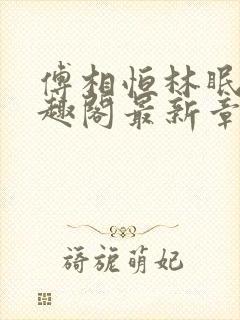 傅相恒林眠
趣阁最新章
旖旎萌妃